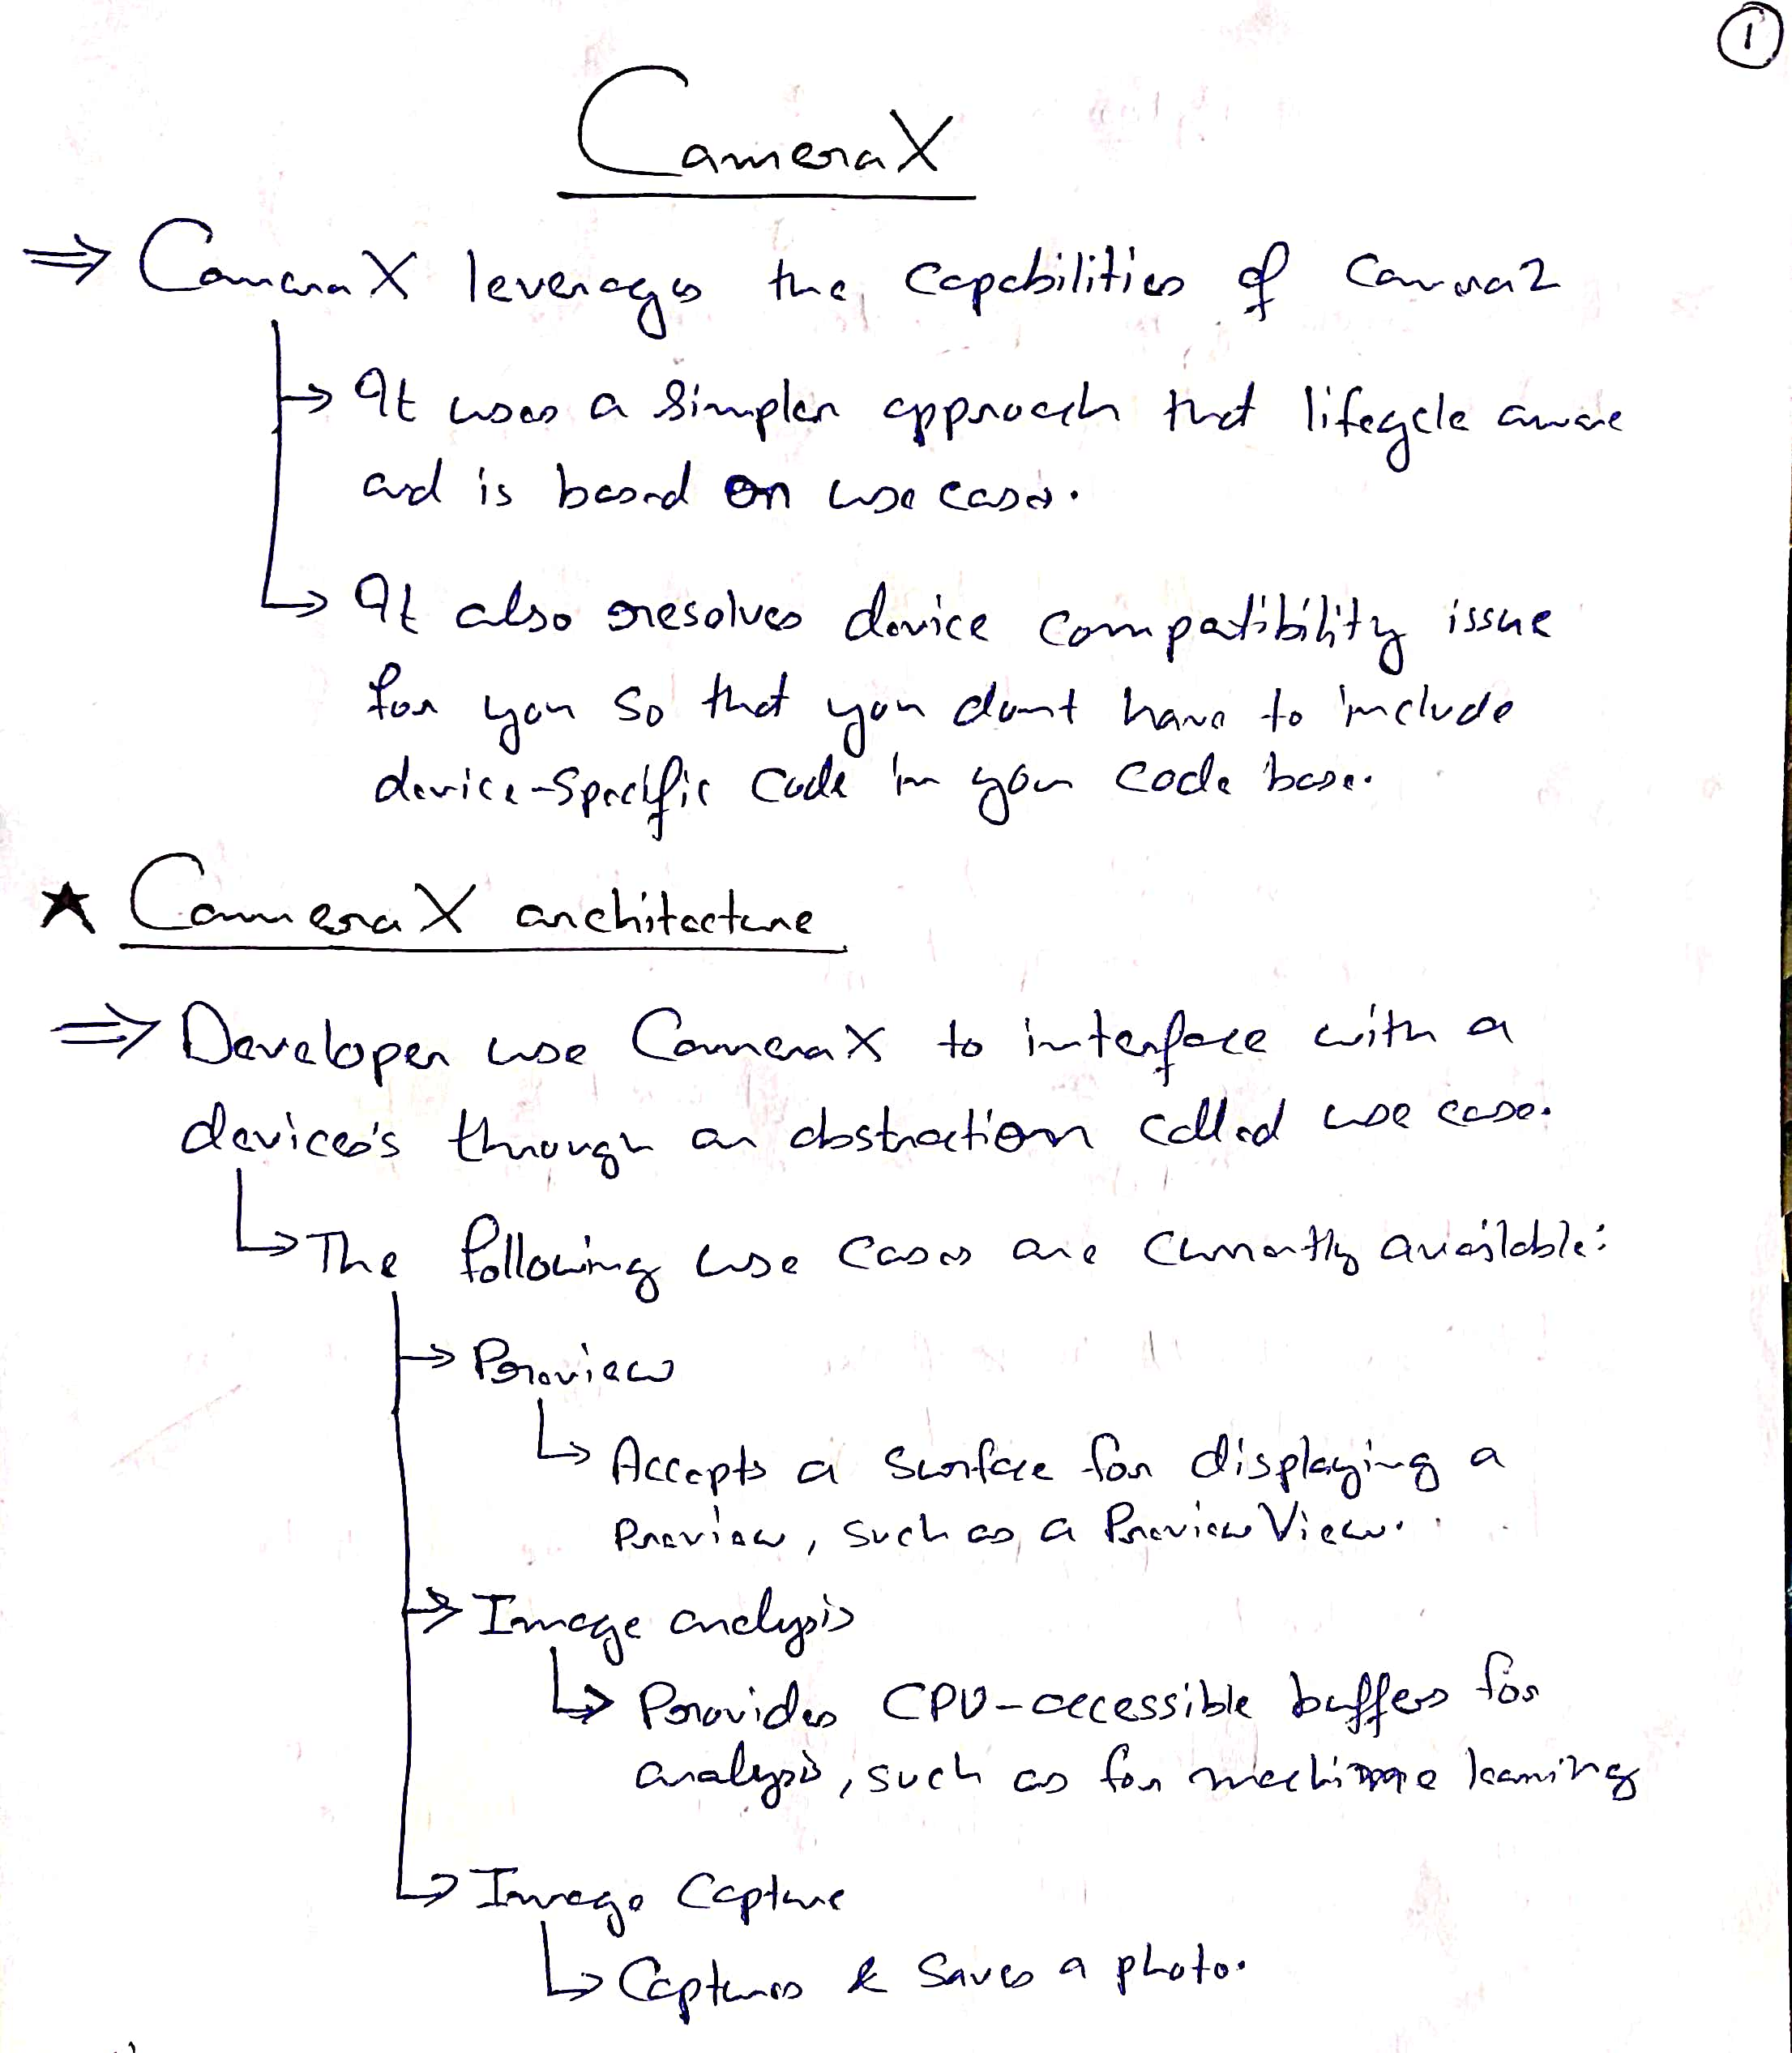 1
CameraX
⇒ CameraX leverages the capabilities of Camera2
→ It uses a simpler approach that lifecycle aware
and is based on use cases.
→ It also resolves device compatibility issue
for you so that you dont have to include
device-specific code in your code base.
★ CameraX architecture
⇒ Developer use CameraX to interface with a
devices's through an abstraction called use case.
→ The following use cases are currently available:
→ Preview
→ Accepts a surface for displaying a
preview, such as a PreviewView.
→ Image analysis
→ Provides CPU-accessible buffers for
analysis, such as for machine learning
→ Image Capture
→ Captures & saves a photo.